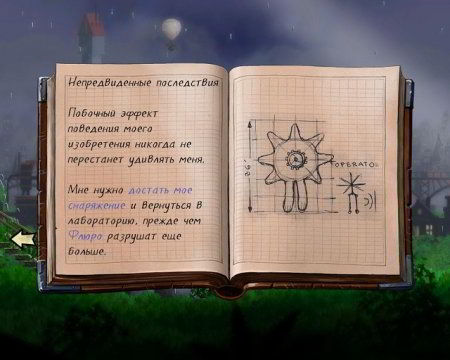 Непредвиденные последствия
Побочный эффект
поведения моего
изобретения никогда не
перестанет удивлять меня.
Мне нужно достать мое
снаряжение и вернуться в
лабораторию, прежде чем
Флюро разрушат еще
больше.
OPERATO